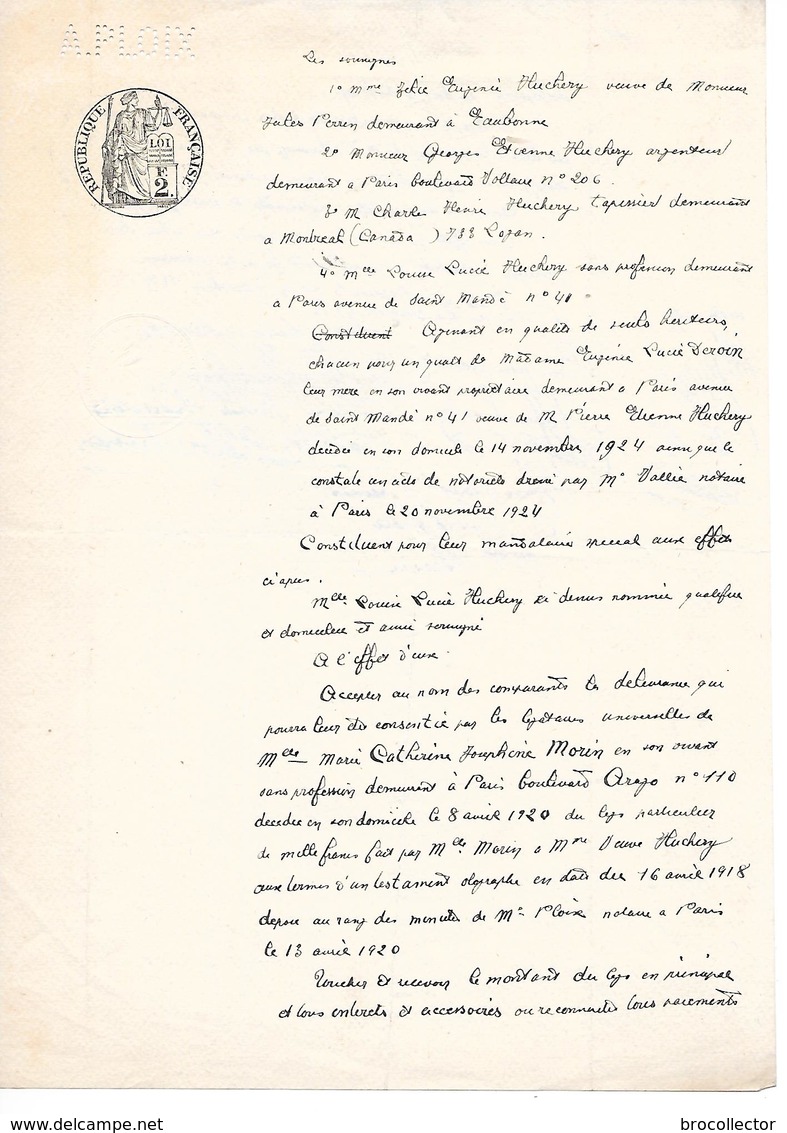 A.PLOIX
REPUBLIQUE FRANÇAISE
LOI
F
2.
Les soussignes
1º Mme Félix Eugénie Huchery veuve de Monsieur
Jules Perrin demeurant à Eaubonne
2º Monsieur Georges Etienne Huchery argenteur
demeurant a Paris boulevard Voltaire nº 206
3º M Charles Henri Huchery tapissier demeurant
a Montreal (Canada ) 733 Logan.
4º Melle Louise Lucie Huchery sans profession demeurant
a Paris avenue de Saint Mandé nº 41
Constituent Agissant en qualité de seuls heritiers,
chacun pour un quart de Madame Eugénie Lucie Deroin
leur mere en son vivant propriétaire demeurant a Paris avenue
de Saint Mandé nº 41 veuve de M Pierre Etienne Huchery
decédée en son domicile le 14 novembre 1924 ainsi que le
constate un acte de notoriété dressé par Me Vallée notaire
à Paris le 20 novembre 1924
Constituent pour leur mandataire special aux effets
ci apres.
Melle Louise Lucie Huchery ci dessus nommée qualifiée
et domiciliée et aussi soussigné
A l'effet d'eux
Accepter au nom des comparants la delivrance qui
pourra leur etre consentie par les legataires universelles de
Melle Marie Catherine Josephine Morin en son vivant
sans profession demeurant à Paris boulevard Arago nº 110
decedée en son domicile le 8 avril 1920 du legs particulier
de mille francs fait par Melle Morin a Mme Veuve Huchery
aux termes d'un testament olographe en date du 16 avril 1918
deposé au rang des minutes de Me Ploix notaire a Paris
le 13 avril 1920
Toucher et recevoir le montant du legs en principal
et tous interets et accessoires ou reconnaitre tous paiements
delcampe.net
brocollector